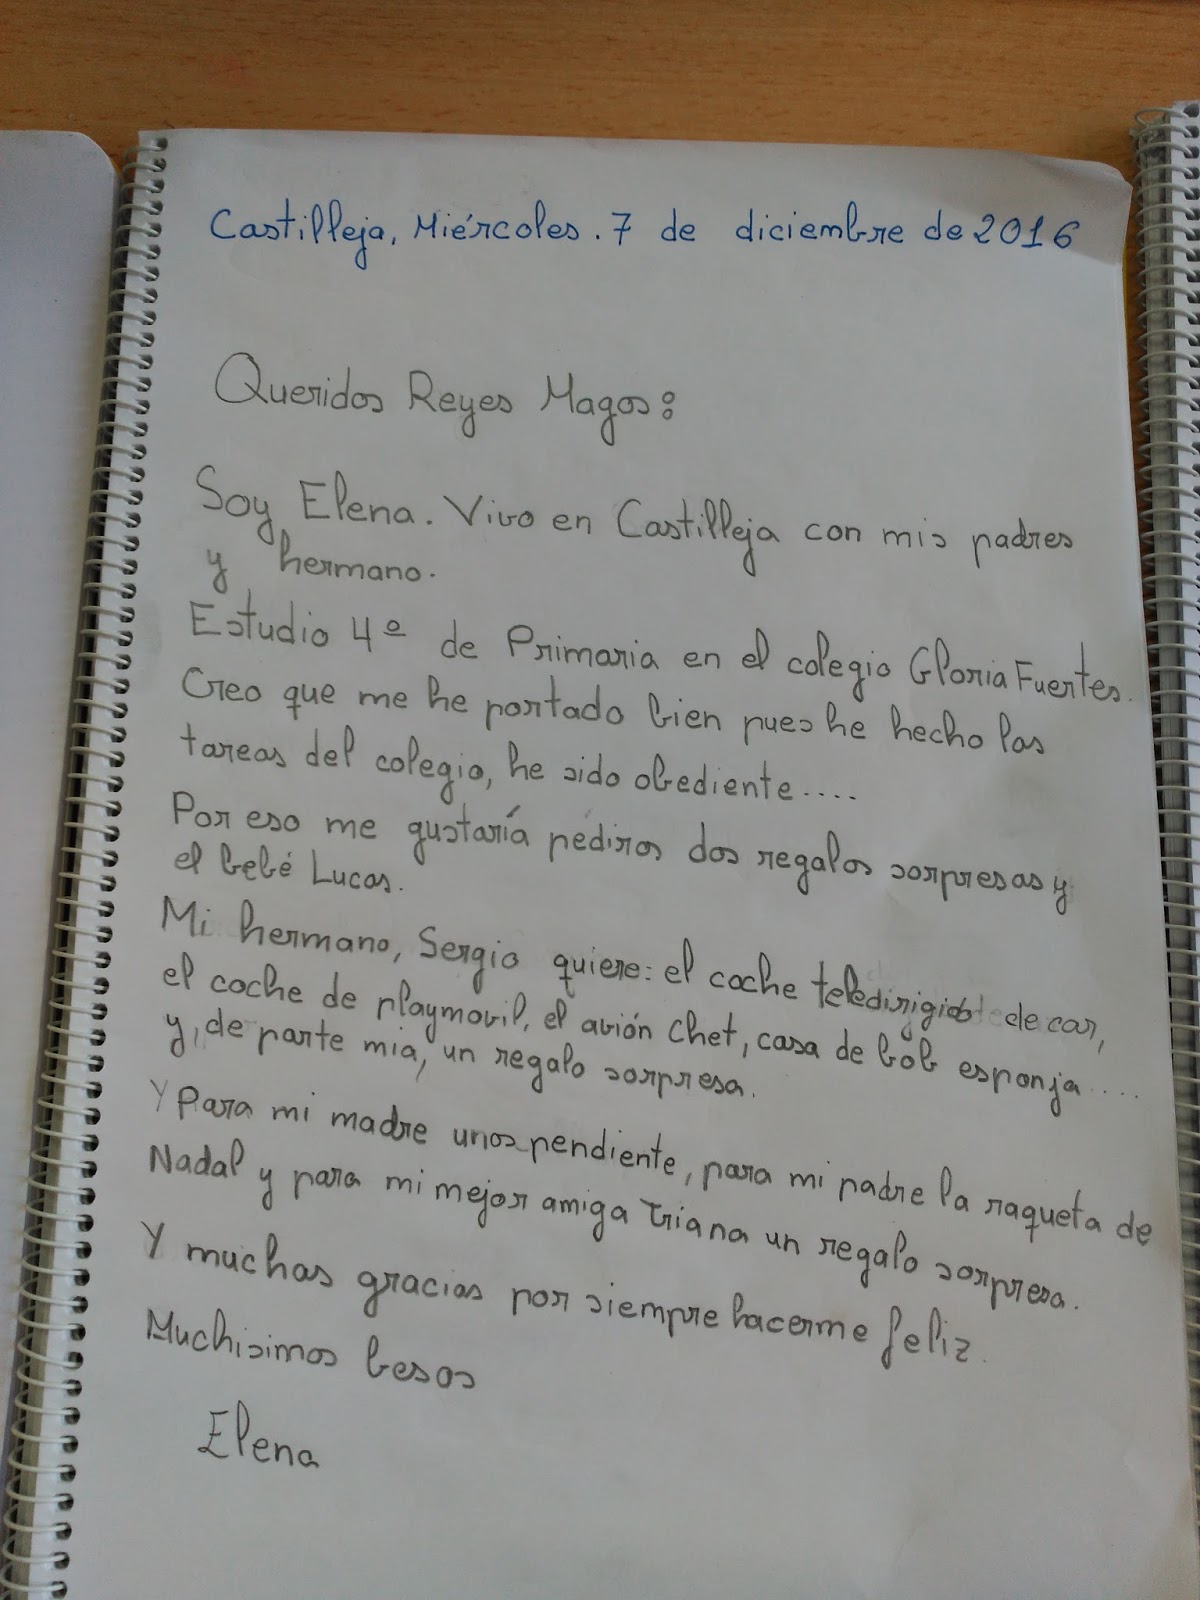 Castilleja, Miércoles. 7 de diciembre de 2016
Queridos Reyes Magos:
Soy Elena. Vivo en Castilleja con mis padres
y hermano.
Estudio 4º de Primaria en el colegio Gloria Fuertes.
Creo que me he portado bien pues he hecho las
tareas del colegio, he sido obediente....
Por eso me gustaría pediros dos regalos sorpresas y
el bebé Lucas.
Mi hermano, Sergio quiere: el coche teledirigido de car,
el coche de playmovil, el avión Chet, casa de bob esponja....
y, de parte mia, un regalo sorpresa.
Y Para mi madre unos pendiente, para mi padre la raqueta de
Nadal y para mi mejor amiga Triana un regalo sorpresa.
Y muchas gracias por siempre hacerme feliz.
Muchisimos besos
Elena